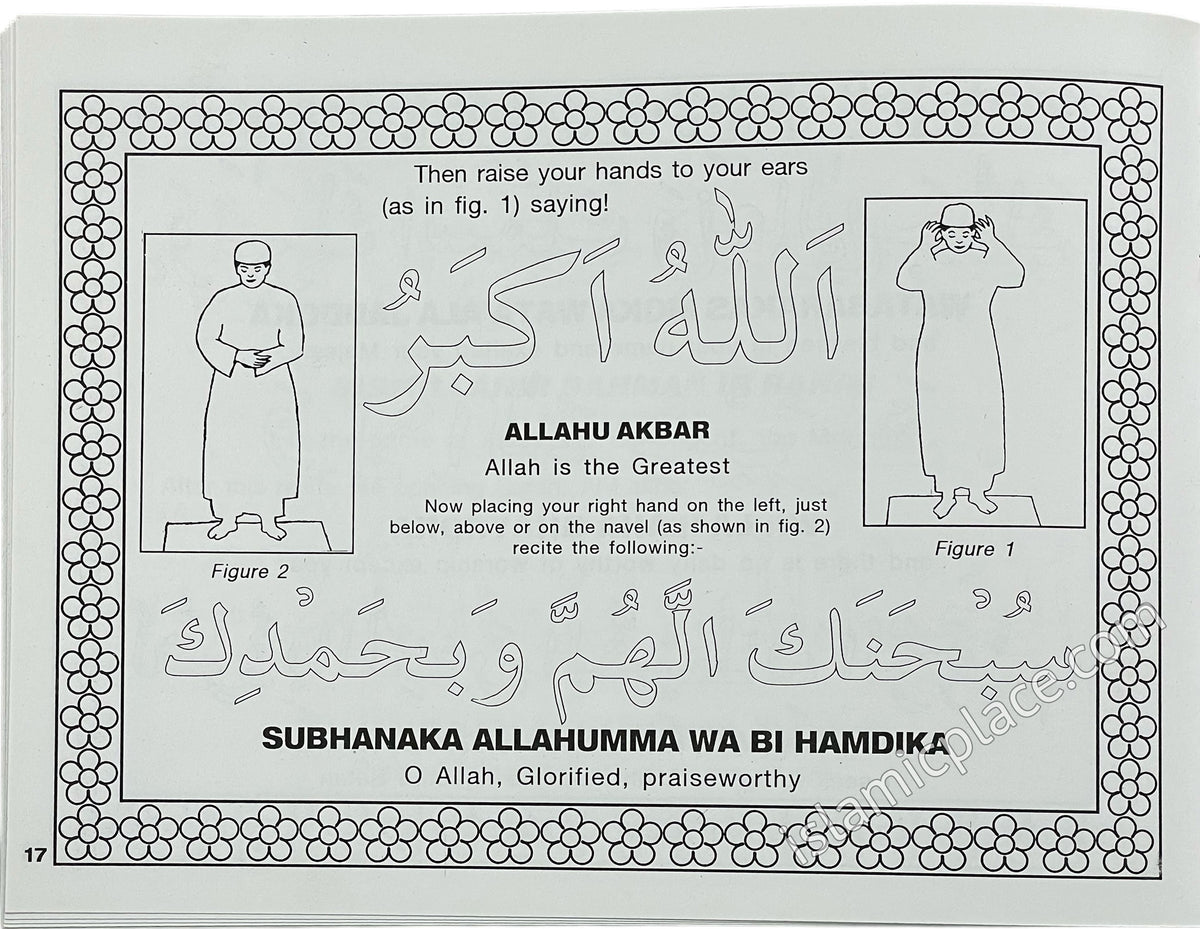 Then raise your hands to your ears
(as in fig. 1) saying!
اَللّٰهُ اَكبَرُ
ALLAHU AKBAR
Allah is the Greatest
Now placing your right hand on the left, just
below, above or on the navel (as shown in fig. 2)
recite the following:-
Figure 2
Figure 1
سُبْحَنَكَ الّهُمَّ وَبحَمْدِكَ
SUBHANAKA ALLAHUMMA WA BI HAMDIKA
O Allah, Glorified, praiseworthy
17
islamicplace.com